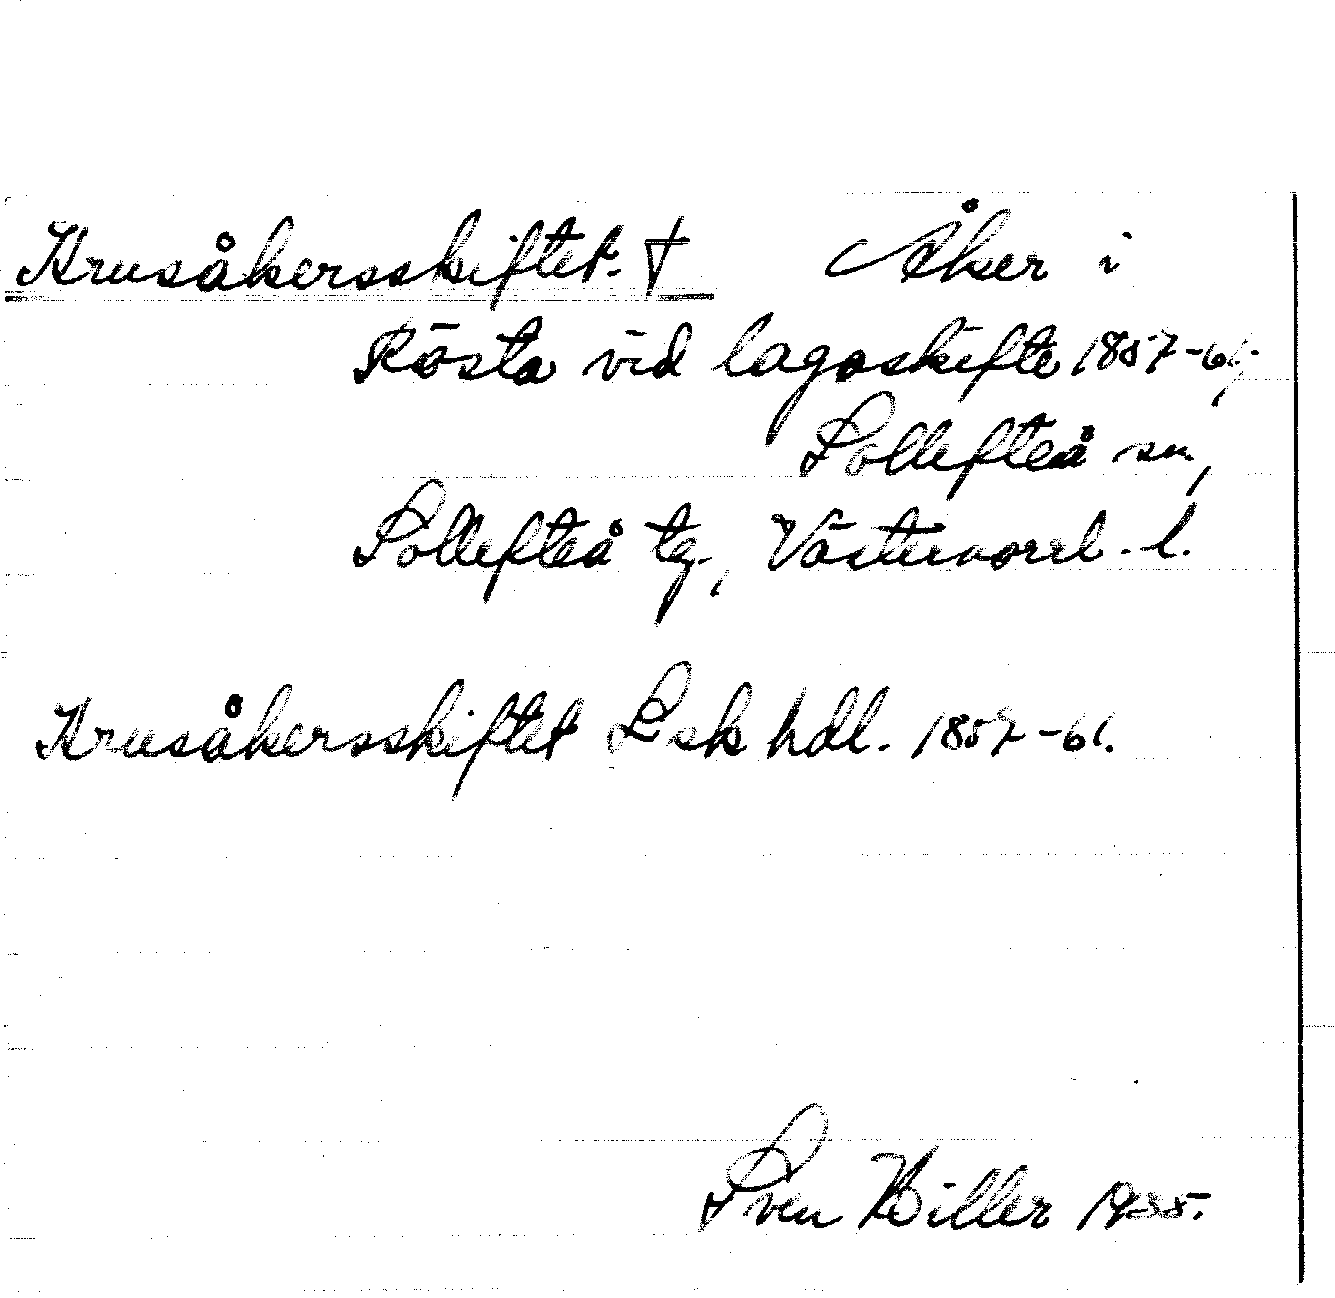 Krusåkersskiftet. † Åker i
Rösta vid lagaskifte 1857-61,
Sollefteå sn,
Sollefteå tg., Västernorrl. l.
Krusåkersskiftet Lsk hdl. 1857-61.
Sven Hiller 1935.